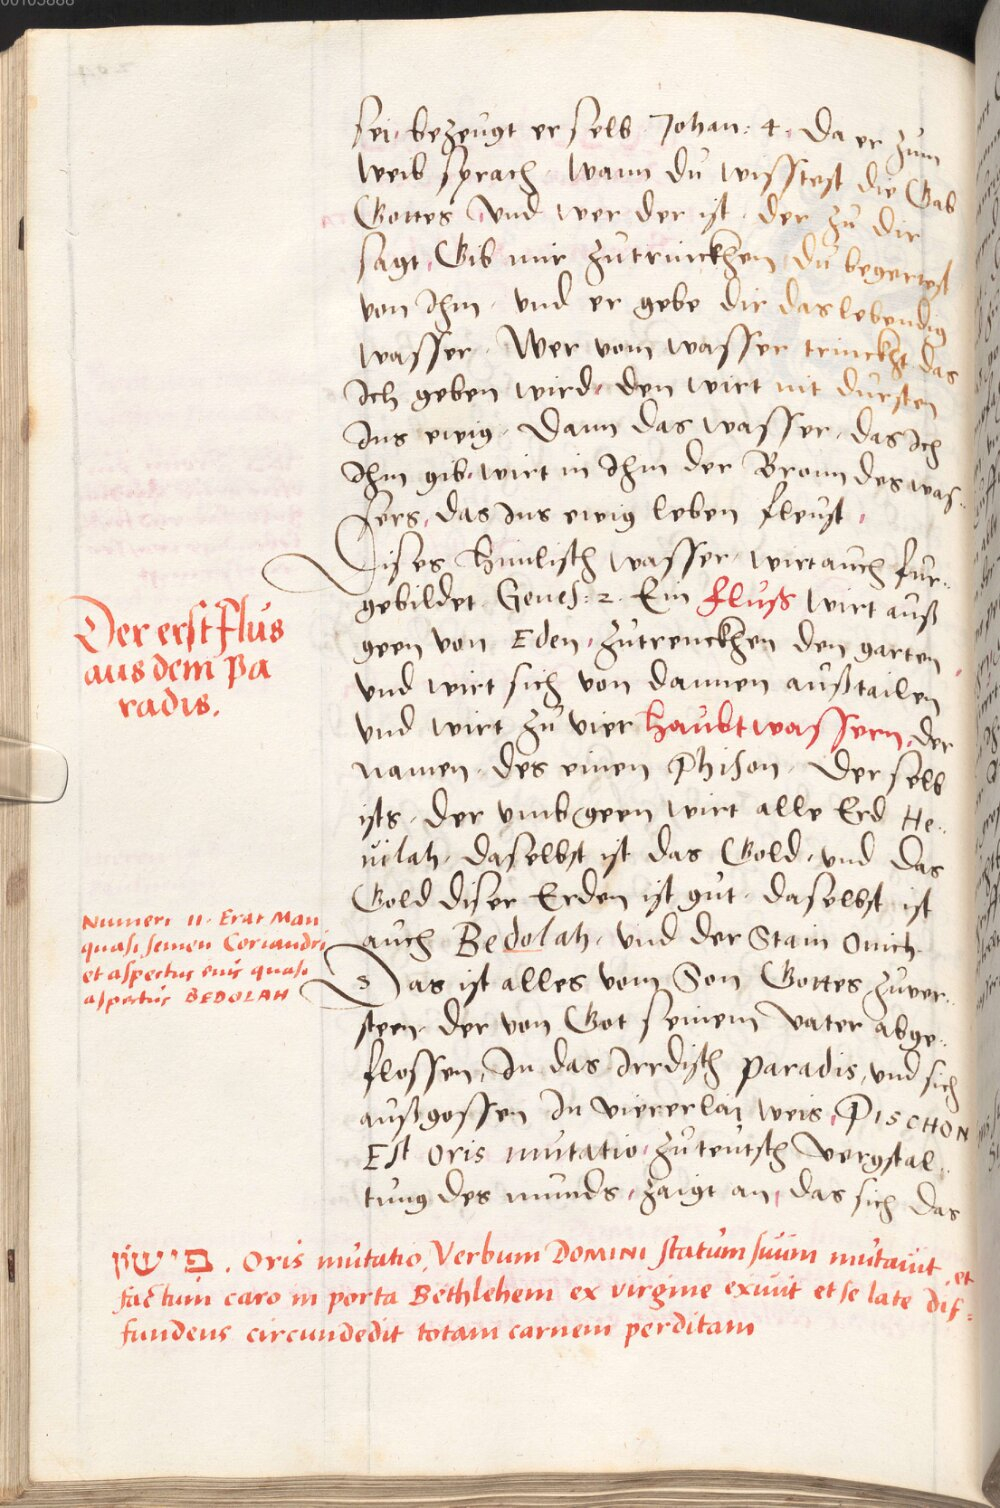 sei, bezeugt er selb Johan: 4. Da er zum
weib sprach, wann du wisstest die Gab
Gottes, und wer der ist, der zu dir
sagt, Gib mir zutrinckhen, du begertest
von Ihm, und er gebe dir das lebendig
wasser, Wer vom wasser trinckht das
Ich geben wird, den wirt nit dursten
Ins ewig, Dann das wasser, das Ich
Ihm gib, wirt in Ihm der Bronn des was-
sers, das Ins ewig leben fleust,
Dises himlisch wasser wirt auch fur-
gebildet Genes: 2. Ein fluss wirt auß
geen von Eden, zutrenckhen den garten
und wirt sich von dannen außtailen
und wirt zu vier haubtwassern, der
namen des einen Phison, Der selb
ists, der umbgeen wirt alle Erd He-
uilah, daselbst ist das Gold, und das
Gold diser Erden ist gut, daselbst ist
auch Bedolah, und der Stain Onich
Das ist alles vom Son Gottes zuver-
steen, der von Got seinem vater abge-
flossen, In das Irrdisch paradis, und sich
außgossen In viererlai weis, PISCHON
Est Oris mutatio, zuteutsch Vergstal-
tung des munds, zaigt an, das sich das
Der erst flus
aus dem Pa
radis.
Numeri 11. Erat Man
quasi semen Coriandri
et aspectus eius quasi
aspectus BEDOLAH
פישון. Oris mutatio, Verbum DOMINI statum suum mutauit, et
factum caro in porta Bethlehem ex virgine exiuit et se late dif-
fundens circundedit totam carnem perditam